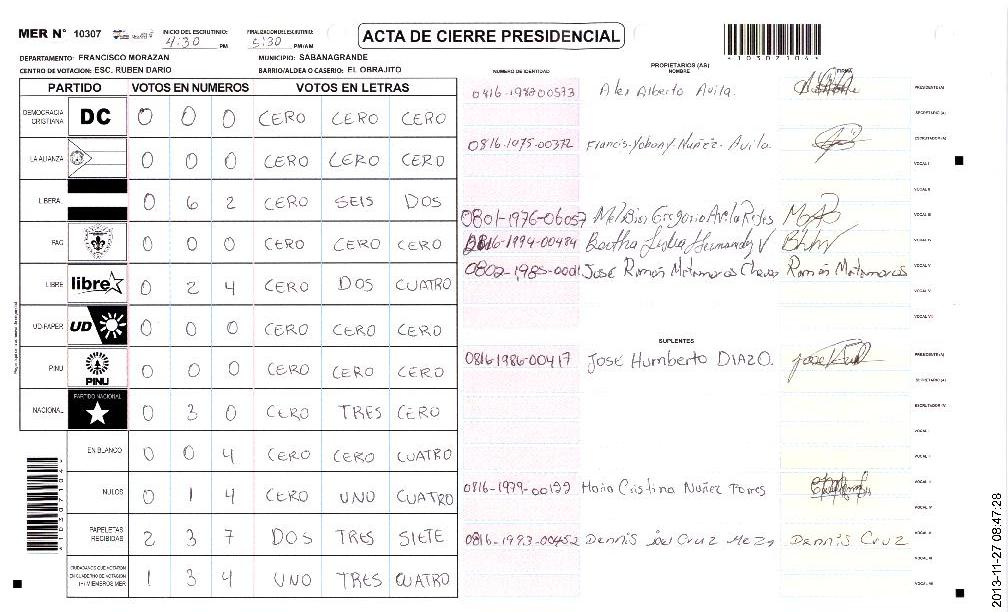 MER N° 10307
INICIO DEL ESCRUTINIO: 4:30 PM
FINALIZACION DEL ESCRUTINIO: 5:30 PM/AM
ACTA DE CIERRE PRESIDENCIAL
*10307104*
DEPARTAMENTO: FRANCISCO MORAZAN
MUNICIPIO: SABANAGRANDE
CENTRO DE VOTACION: ESC. RUBEN DARIO
BARRIO/ALDEA O CASERIO: EL OBRAJITO
PARTIDO VOTOS EN NUMEROS VOTOS EN LETRAS
DEMOCRACIA CRISTIANA DC 0 0 0 CERO CERO CERO
LA ALIANZA 0 0 0 CERO CERO CERO
LIBERAL 0 6 2 CERO SEIS DOS
PAC 0 0 0 CERO CERO CERO
LIBRE libre 0 2 4 CERO DOS CUATRO
UD-FAPER UD 0 0 0 CERO CERO CERO
PINU PINU 0 0 0 CERO CERO CERO
NACIONAL PARTIDO NACIONAL 0 3 0 CERO TRES CERO
EN BLANCO 0 0 4 CERO CERO CUATRO
NULOS 0 1 4 CERO UNO CUATRO
PAPELETAS RECIBIDAS 2 3 7 DOS TRES SIETE
CIUDADANOS QUE VOTARON EN CUADERNO DE VOTACION (+) MIEMBROS MER 1 3 4 UNO TRES CUATRO
*10307104*
NUMERO DE IDENTIDAD
PROPIETARIOS (AS) NOMBRE
FIRMA
0816-1982-00573 Alex Alberto Avila. PRESIDENTE(A)
SECRETARIO (A)
0816-1975-00372 Francis Yobany Nuñez Avila ESCRUTADOR (A)
VOCAL I
VOCAL II
0801-1976-06057 Gregorio Avila Reyes VOCAL III
0816-1994-00484 Bertha Lidia Hernandez V BHV VOCAL IV
José Ramón Matamoros Chavez Ramón Matamoros VOCAL V
VOCAL VI
VOCAL VII
SUPLENTES
0816-1986-00417 José Humberto DIAZ O. PRESIDENTE(A)
SECRETARIO (A)
VOCAL I
0816-1979-00122 María Cristina Nuñez Torres
0816-1993-00452 Dennis Joel Cruz Meza Dennis Cruz
2013-11-27 08:47:28